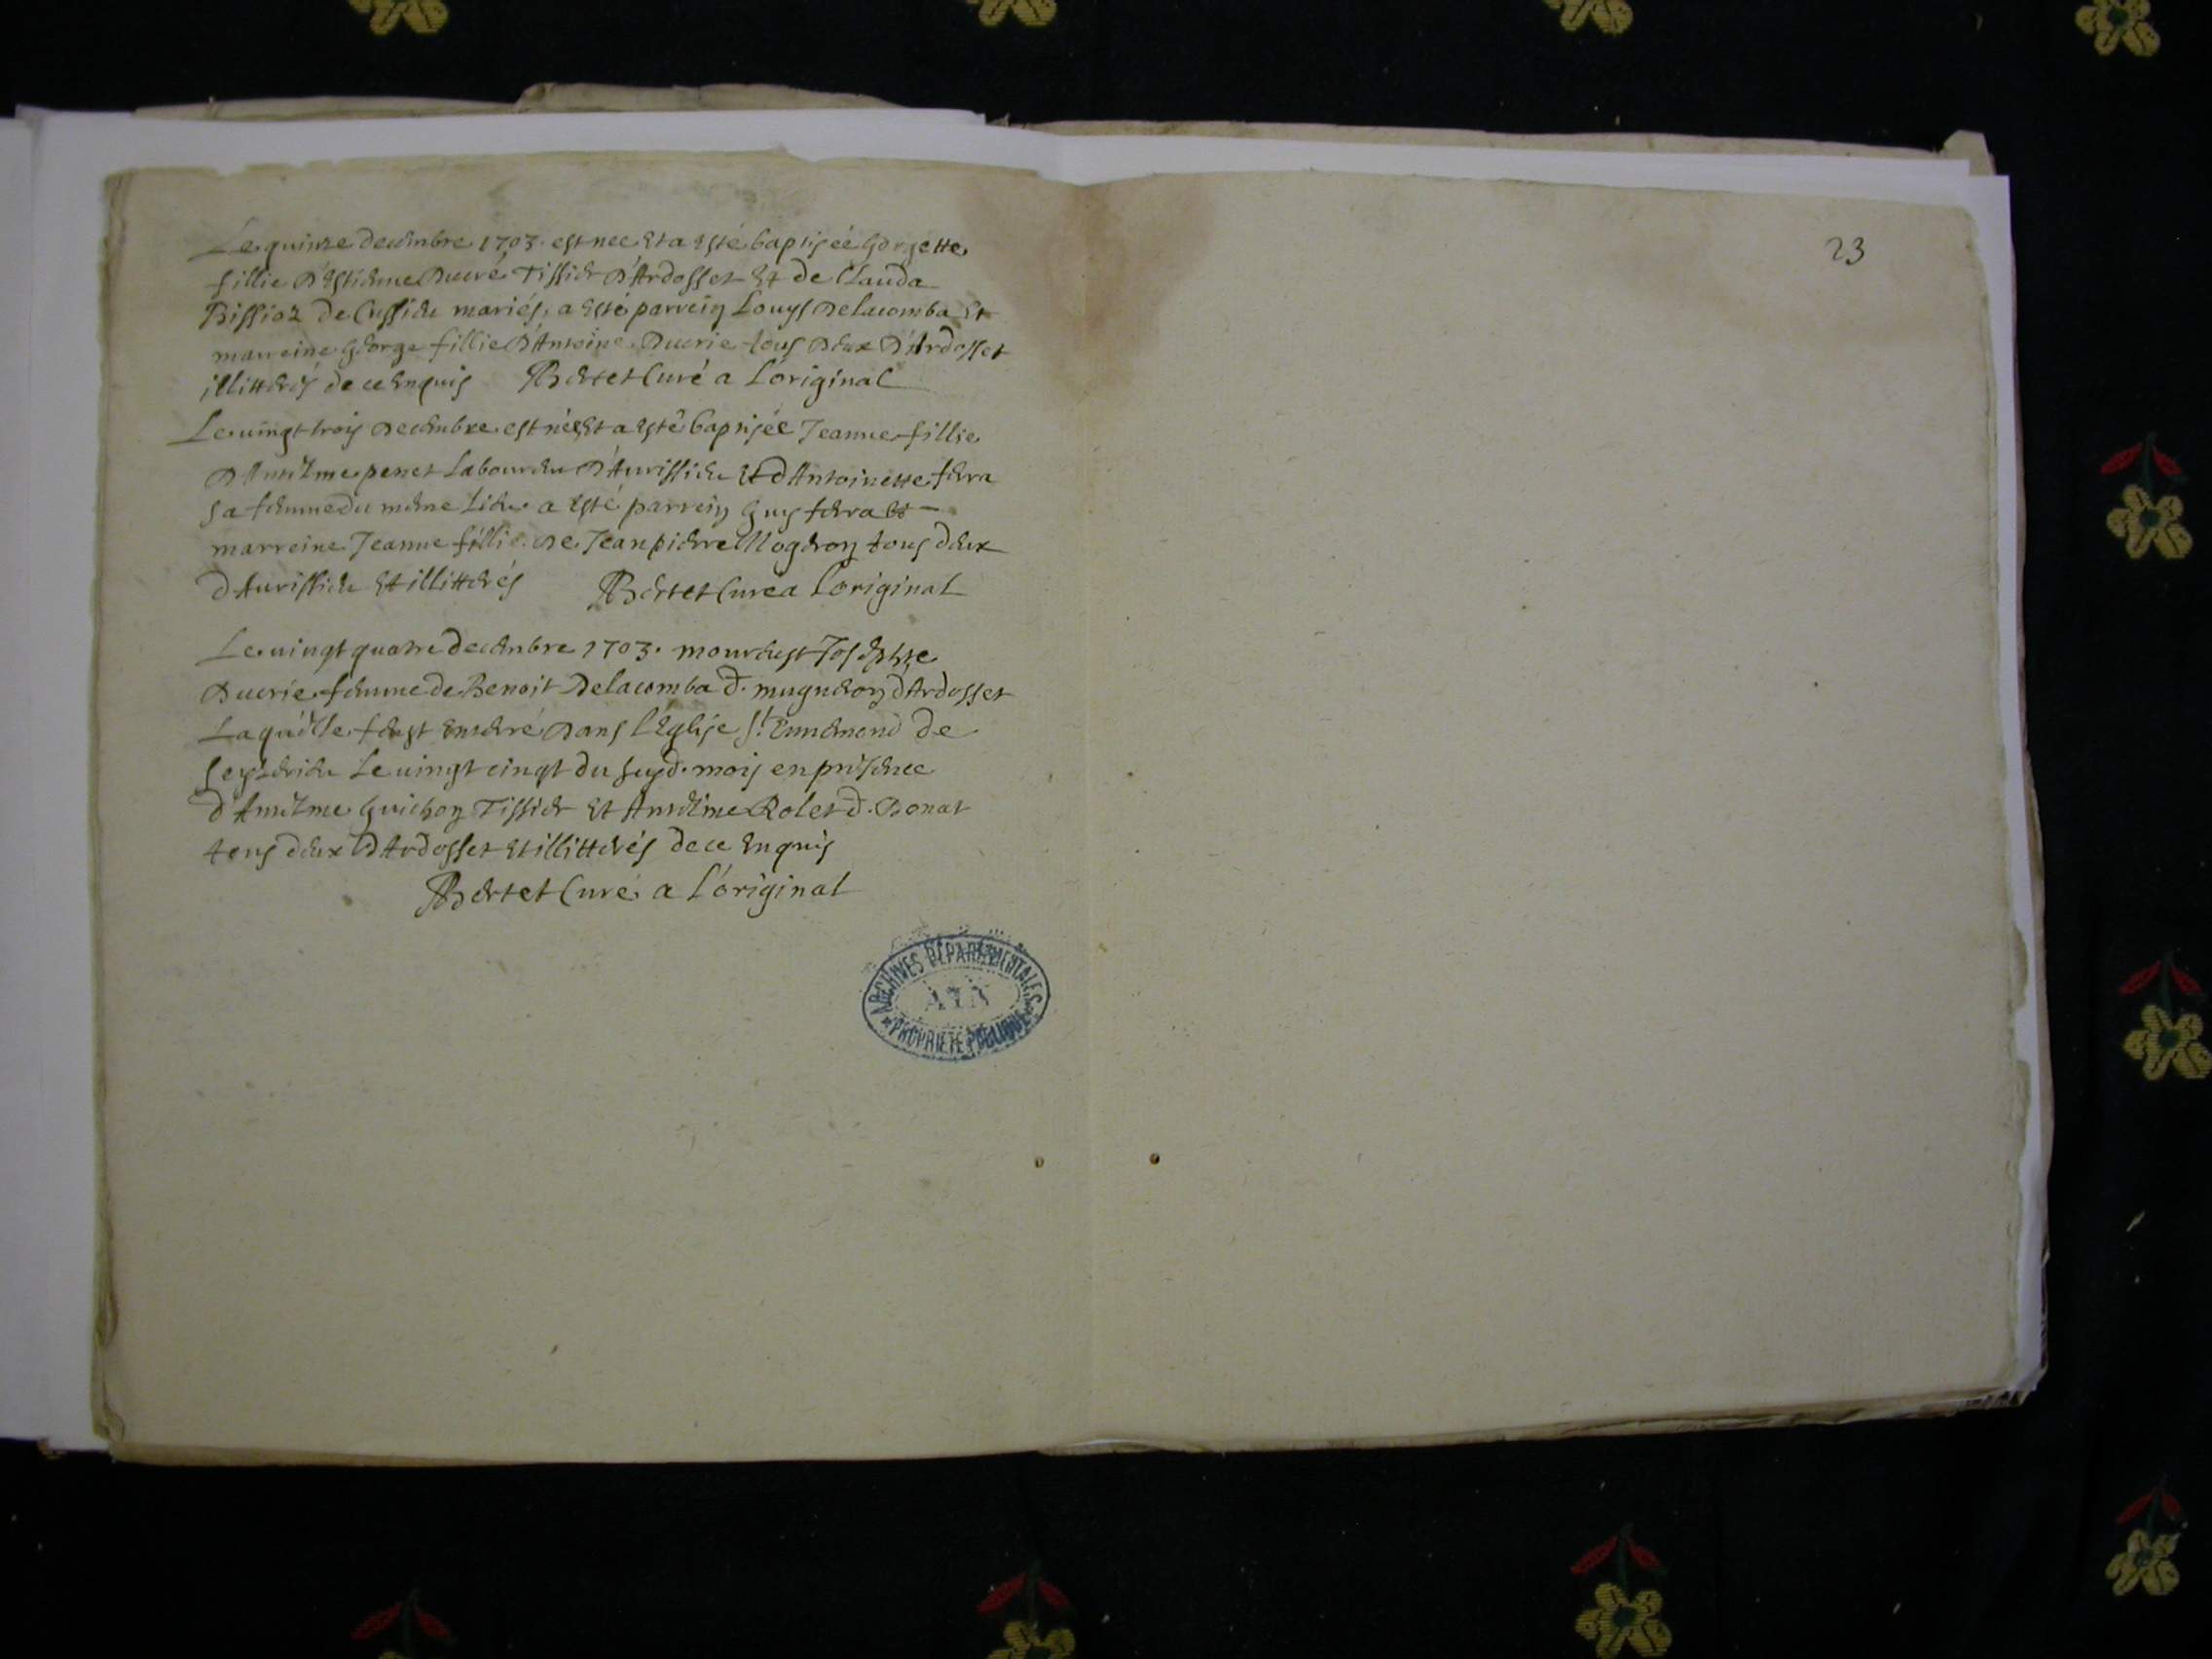 Le quinze decembre 1703. est nee et a esté baptisée Gorgette
fillie D'Estienne Ducré Tissier D'Ardosset Et de Clauda
Bissioz de Cessieu mariés, a esté parrein Louys Delacomba Et
marreine George fillie D'Antoine Ducrie tous deux D'Ardosset
illitterés de ce enquis Bertet Curé a L'original
Le vingt trois decembre est née Et a esté baptisée Jeanne fillie
D'Antelme penet Laboureu D'Aurissieu Et d'Antoinette ferra
sa femme du meme Lieu. a esté parrein Guy ferra et
marreine Jeanne fillie de Jean pierre Mogeron tous deux
d'Aurissieu Et illitterés Bertet Curé a L'original
Le vingt quatre decembre 1703. mourust Josephte
Ducrie femme de Benoit Delacomba d. mugneron d'Ardosset
Laquelle fust enterré Dans l'Eglise St. Ennemond de
Ceyzerieu Le vingt cinqt du susd. mois en presence
d'Antelme Guichon Tissier Et Antelme Rolet d. Bonat
tous deux d'Ardosset et illitterés de ce enquis
Bertet Curé a L'original
ARCHIVES DEPARTEMENTALES
AIN
PROPRIETE PUBLIQUE
23